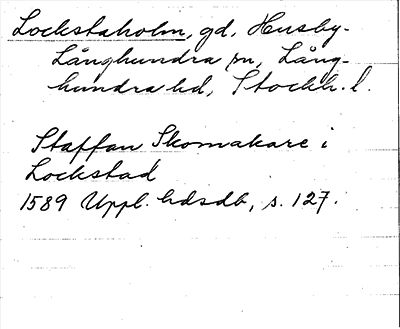 Lockstaholm, gd, Husby-
Långhundra sn, Lång-
hundra hd, Stockh. l.
Staffan Skomakare i
Lockstad
1589 Uppl. hdsdb, s. 127.